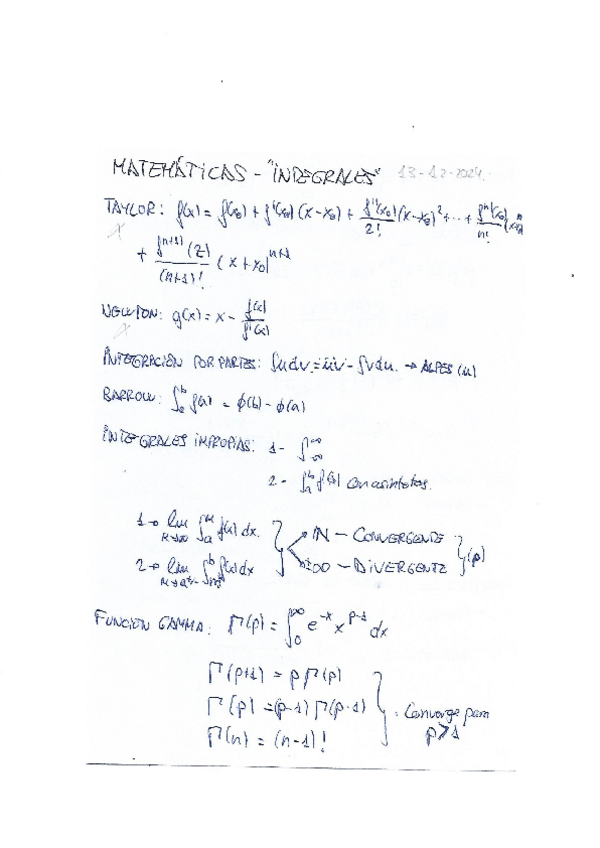 MATEMÁTICAS - "INTEGRALES" 13-12-2024.
TAYLOR: f(x) = f(x₀) + f'(x₀) (x-x₀) + f''(x₀)/2! (x-x₀)² + ... + fⁿ(x₀)/n! (x-x₀)ⁿ
+ fⁿ⁺¹⁾(z)/(n+1)! (x+x₀)ⁿ⁺¹
NEWTON: g(x) = x - f(x)/f'(x)
INTEGRACIÓN POR PARTES: ∫u dv = uv - ∫v du. → ALPES (u)
BARROW: ∫ₐᵇ f(x) = ϕ(b) - ϕ(a)
INTEGRALES IMPROPIAS: 1- ∫₋∞^∞
2- ∫ₐᵇ f(x) con asíntotas.
1→ lim M→∞ ∫ₐᴹ f(x) dx. } ℕ - CONVERGENTE } (p)
2→ lim M→a⁺ ∫ₘᵇ f(x) dx ±∞ - DIVERGENTE
FUNCIÓN GAMMA: Γ(p) = ∫₀^∞ e⁻ˣ xᵖ⁻¹ dx
Γ(p+1) = p Γ(p)
Γ(p) = (p-1) Γ(p-1) } Converge para
Γ(n) = (n-1)! p>1